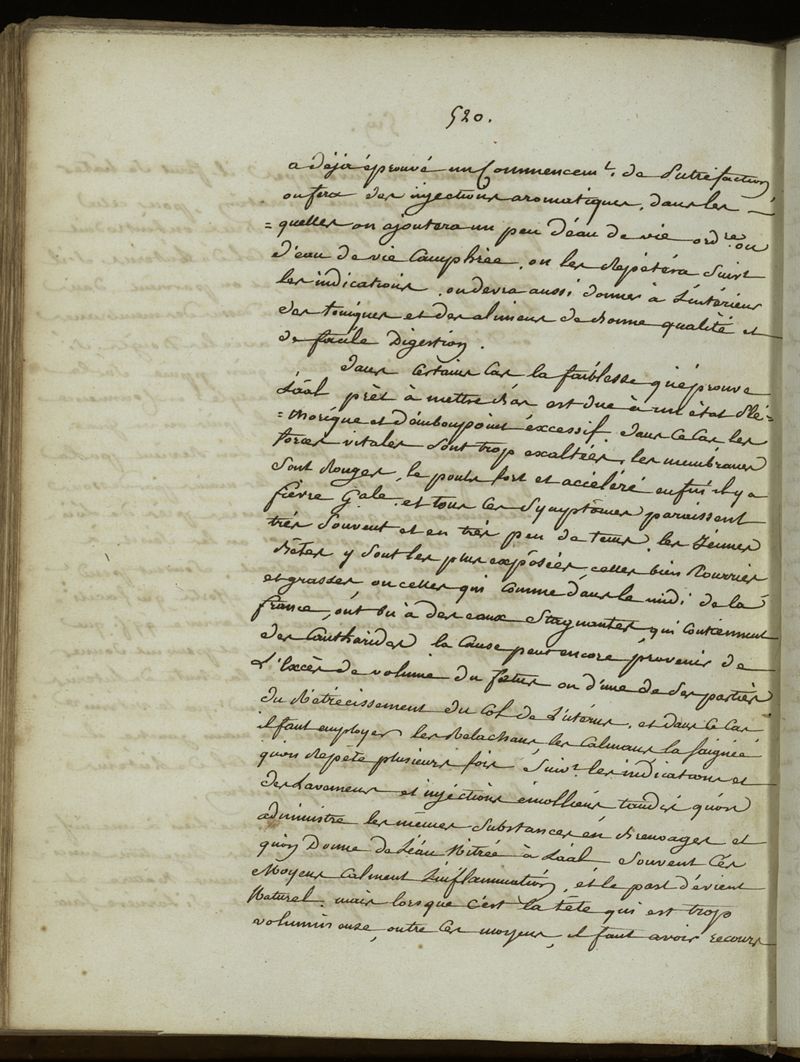 520.
a déja éprouvé un Commencemt. de Putréfaction
on fera des injections aromatiques, dans les —
= quelles on ajoutera un peu d'éau de vie ordre. ou
d'eau de vie Camphrée, on les Répétéra Suivt
les indications, on devra aussi donner à L'intérieur
des toniques et des alimens de Bonne qualité et
de facile Digestion.
Dans Certains Cas la faiblesse qu'éprouve
L'áal prèt à mettre Bas est due à un état Plé=
= thorique et d'émbonpoint éxcessif. dans Ce Cas les
forces vitales Sont trop exaltées, les membranes
Sont Rouges, le pouls fort et accéléré enfin il y a
fièvre Gale. et tous Ces Symptômes paraissent
très Souvent et en très peu de tems. les Jeunes
Bètes y Sont les plus exposées, celles bien Nourries
et grasses ou celles qui Comme dans le midi de la
france, ónt bu à des eaux Stagnantes, qui Contiennent
des Cantharides la Cause peut encore provenir de
L'Excès de volume du foetus ou d'une de Ses parties
du Rétrécissement du Col de L'utérus. et dans Ce Cas
il faut employer les Relachans, les Calmans la Saignée
qu'on Répète plusieurs fois Suivt. les indications et
des Lavemens et injéctions émolliens tandis qu'on
administre les mèmes Substances én Breuvages et
qu'on Donne de L'éau Nitrée à L'áal Souvent Ces
Moyens Calment L'inflammation, ét le part dévient
Naturel. mais lorsque c'est la tète qui est trop
volumineuse, outre Ces moyens, il faut avoir recours